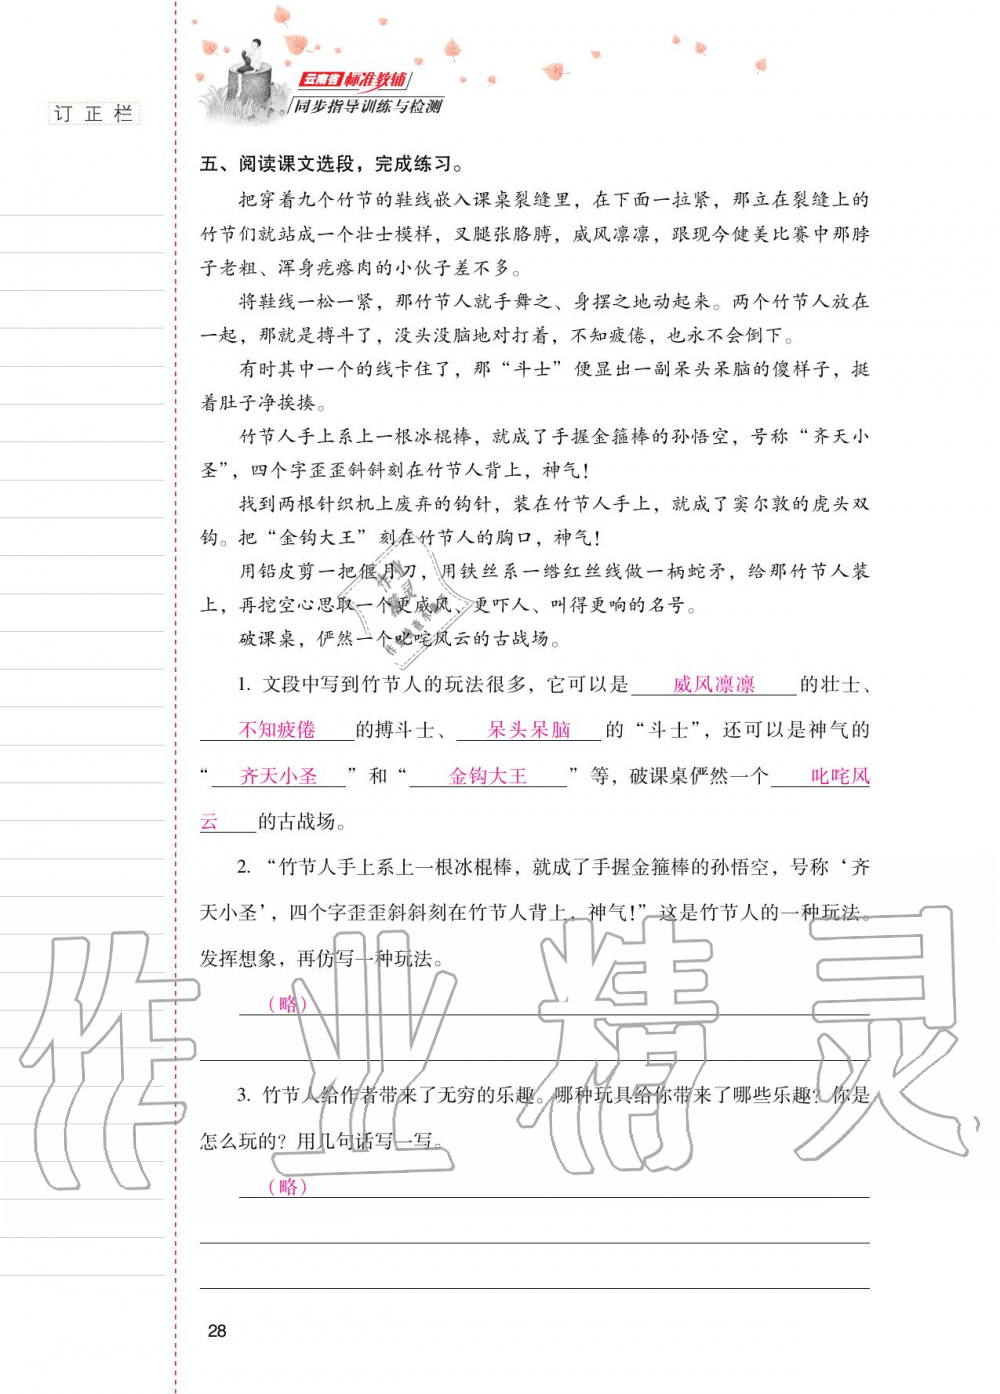 云南省标准教辅
同步指导训练与检测
订 正 栏
五、阅读课文选段，完成练习。
把穿着九个竹节的鞋线嵌入课桌裂缝里，在下面一拉紧，那立在裂缝上的
竹节们就站成一个壮士模样，叉腿张胳膊，威风凛凛，跟现今健美比赛中那脖
子老粗、浑身疙瘩肉的小伙子差不多。
将鞋线一松一紧，那竹节人就手舞之、身摆之地动起来。两个竹节人放在
一起，那就是搏斗了，没头没脑地对打着，不知疲倦，也永不会倒下。
有时其中一个的线卡住了，那“斗士”便显出一副呆头呆脑的傻样子，挺
着肚子净挨揍。
竹节人手上系上一根冰棍棒，就成了手握金箍棒的孙悟空，号称“齐天小
圣”，四个字歪歪斜斜刻在竹节人背上，神气！
找到两根针织机上废弃的钩针，装在竹节人手上，就成了窦尔敦的虎头双
钩。把“金钩大王”刻在竹节人的胸口，神气！
用铅皮剪一把偃月刀，用铁丝系一绺红丝线做一柄蛇矛，给那竹节人装
上，再挖空心思取一个更威风、更吓人、叫得更响的名号。
破课桌，俨然一个叱咤风云的古战场。
1. 文段中写到竹节人的玩法很多，它可以是 威风凛凛 的壮士、
不知疲倦 的搏斗士、 呆头呆脑 的“斗士”，还可以是神气的
“ 齐天小圣 ”和“ 金钩大王 ”等，破课桌俨然一个 叱咤风
云 的古战场。
2. “竹节人手上系上一根冰棍棒，就成了手握金箍棒的孙悟空，号称‘齐
天小圣’，四个字歪歪斜斜刻在竹节人背上，神气！”这是竹节人的一种玩法。
发挥想象，再仿写一种玩法。
（略）
3. 竹节人给作者带来了无穷的乐趣。哪种玩具给你带来了哪些乐趣？你是
怎么玩的？用几句话写一写。
（略）
28
作业精灵